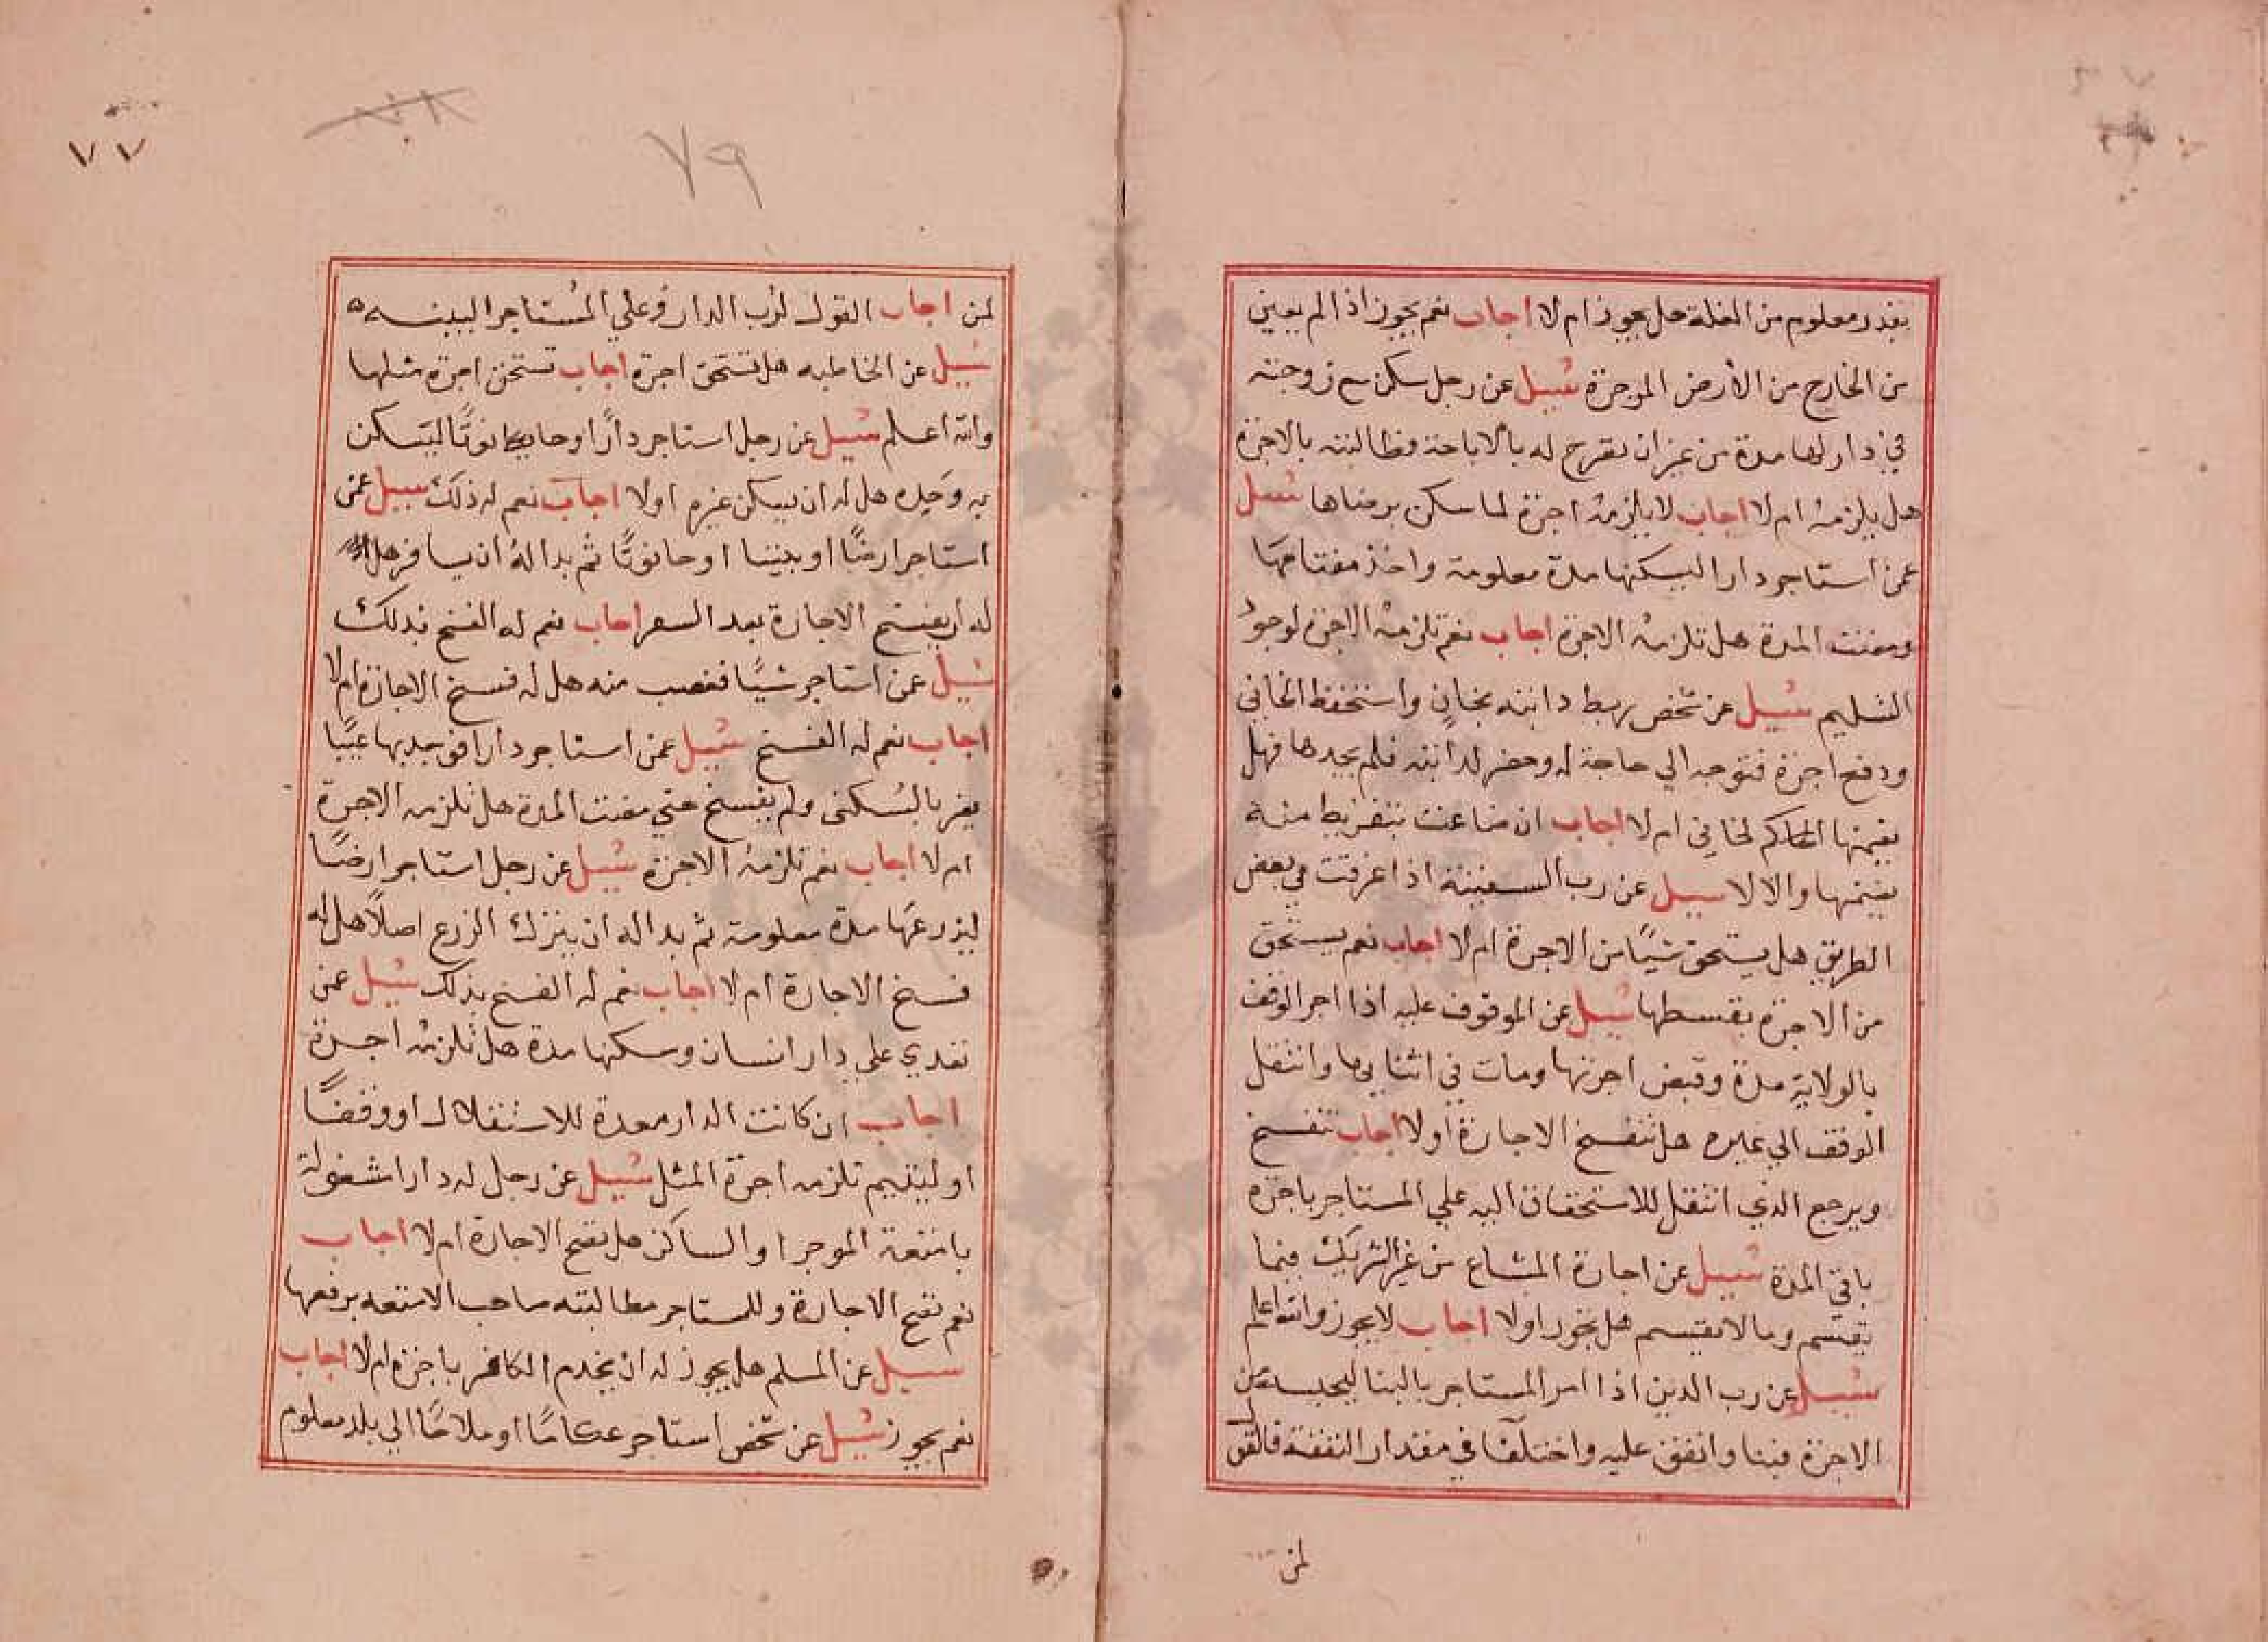 بقدر معلوم من الغلة هل يجوز ام لا اجاب نعم يجوز اذا لم يعين
من الخارج من الأرض الموجرة سيل عن رجل سكن مع زوجته
في دار لها مدة من غير ان تصرح له بالاباحة وطالبته بالاجرة
هل يلزمه ام لا اجاب لا يلزمه اجرة لما سكن برضاها سيل
عمن استاجر دارا ليسكنها مدة معلومة واخذ مفتاحها
ومضت المدة هل تلزمه الاجرة اجاب نعم تلزمه الاجرة لوجود
التسليم سيل عن شخص ربط دابته بخان واستحفظ الخاني
ودفع اجرة فتوجه الي حاجة له وحضر لدابته فلم يجدها فهل
يضمنها الخاني ام لا اجاب ان ضاعت بتفريط منه
يضمنها والا لا سيل عن رب السفينة اذا غرقت في بعض
الطريق هل يستحق شيًا من الاجرة ام لا اجاب نعم يستحق
من الاجرة بقسطها سيل عن الموقوف عليه اذا اجر الوقف
بالولاية مدة وقبض اجرتها ومات في اثنايها وانتقل
الوقف الي غيره هل تنفسخ الاجارة أولا اجاب تنفسخ
ويرجع الذي انتقل للاستحقاق اليه علي المستاجر باجرة
باقي المدة سيل عن اجارة المشاع من غير الشريك فيما
يقسم وما لا يقسم هل يجوز اولا اجاب لا يجوز والله اعلم
سيل عن رب الدين اذا امر المستاجر بالبنا ليحسبه من
الاجرة فبنا وانفق عليه واختلفا في مقدار النفقة فالقول
لمن
٧٧
٧٩
لمن اجاب القول لرب الدار وعلي المستاجر البينه
سيل عن الخاطبه هل تستحق اجرة اجاب تستحق اجرة مثلها
والله اعلم سيل عن رجل استاجر دارًا او حانوتًا ليسكن
به وحده هل له ان يسكن غيره اولا اجاب نعم له ذلك سيل عمن
استاجر ارضًا او بيتا او حانوتًا ثم بدا له ان يسافر هل
له أن يفسخ الاجارة بعد السفر اجاب نعم له الفسخ بذلك
سيل عمن استاجر شيًا فغصب منه هل له فسخ الاجارة ام لا
اجاب نعم له الفسخ سيل عمن استاجر دارا فوجد بها عيبًا
يضر بالسكنى ولم يفسخ حتي مضت المدة هل تلزمه الاجرة
ام لا اجاب نعم تلزمه الاجرة سيل عن رجل استاجر ارضًا
ليزرعها مدة معلومة ثم بدا له ان يترك الزرع اصلًا هل له
فسخ الاجارة ام لا اجاب نعم له الفسخ بذلك سيل عمن
تعدي علي دار انسان وسكنها مدة هل تلزمه اجرة
اجاب ان كانت الدار معدة للاستغلال او وقفًا
او ليتيم تلزمه اجرة المثل سيل عن رجل له دار اشغولة
بامتعة الموجر او الساكن هل تصح الاجارة ام لا اجاب
نعم تصح الاجارة وللمستاجر مطالبته صاحب الامتعه برفعها
سيل عن المسلم هل يجوز له ان يخدم الكافر باجرة ام لا اجاب
نعم يجوز سيل عن شخص استاجر عكامًا او ملاحًا الي بلد معلوم